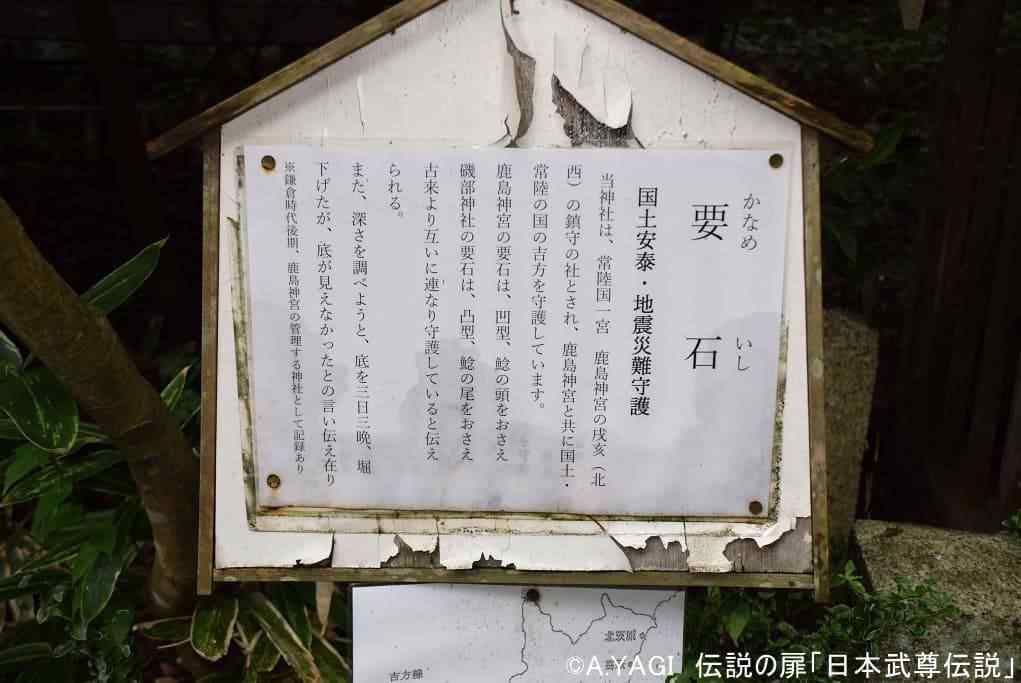 要石
かなめいし
国土安泰・地震災難守護
当神社は、常陸国一宮　鹿島神宮の戌亥（北
西）の鎮守の社とされ、鹿島神宮と共に国土・
常陸の国の吉方を守護しています。
鹿島神宮の要石は、凹型、鯰の頭をおさえ
磯部神社の要石は、凸型、鯰の尾をおさえ
古来より互いに連なり守護していると伝え
られる。
また、深さを調べようと、底を三日三晩、堀
下げたが、底が見えなかったとの言い伝え在り
※鎌倉時代後期、鹿島神宮の管理する神社として記録あり
北茨城
吉方線
©A.YAGI　伝説の扉「日本武尊伝説」